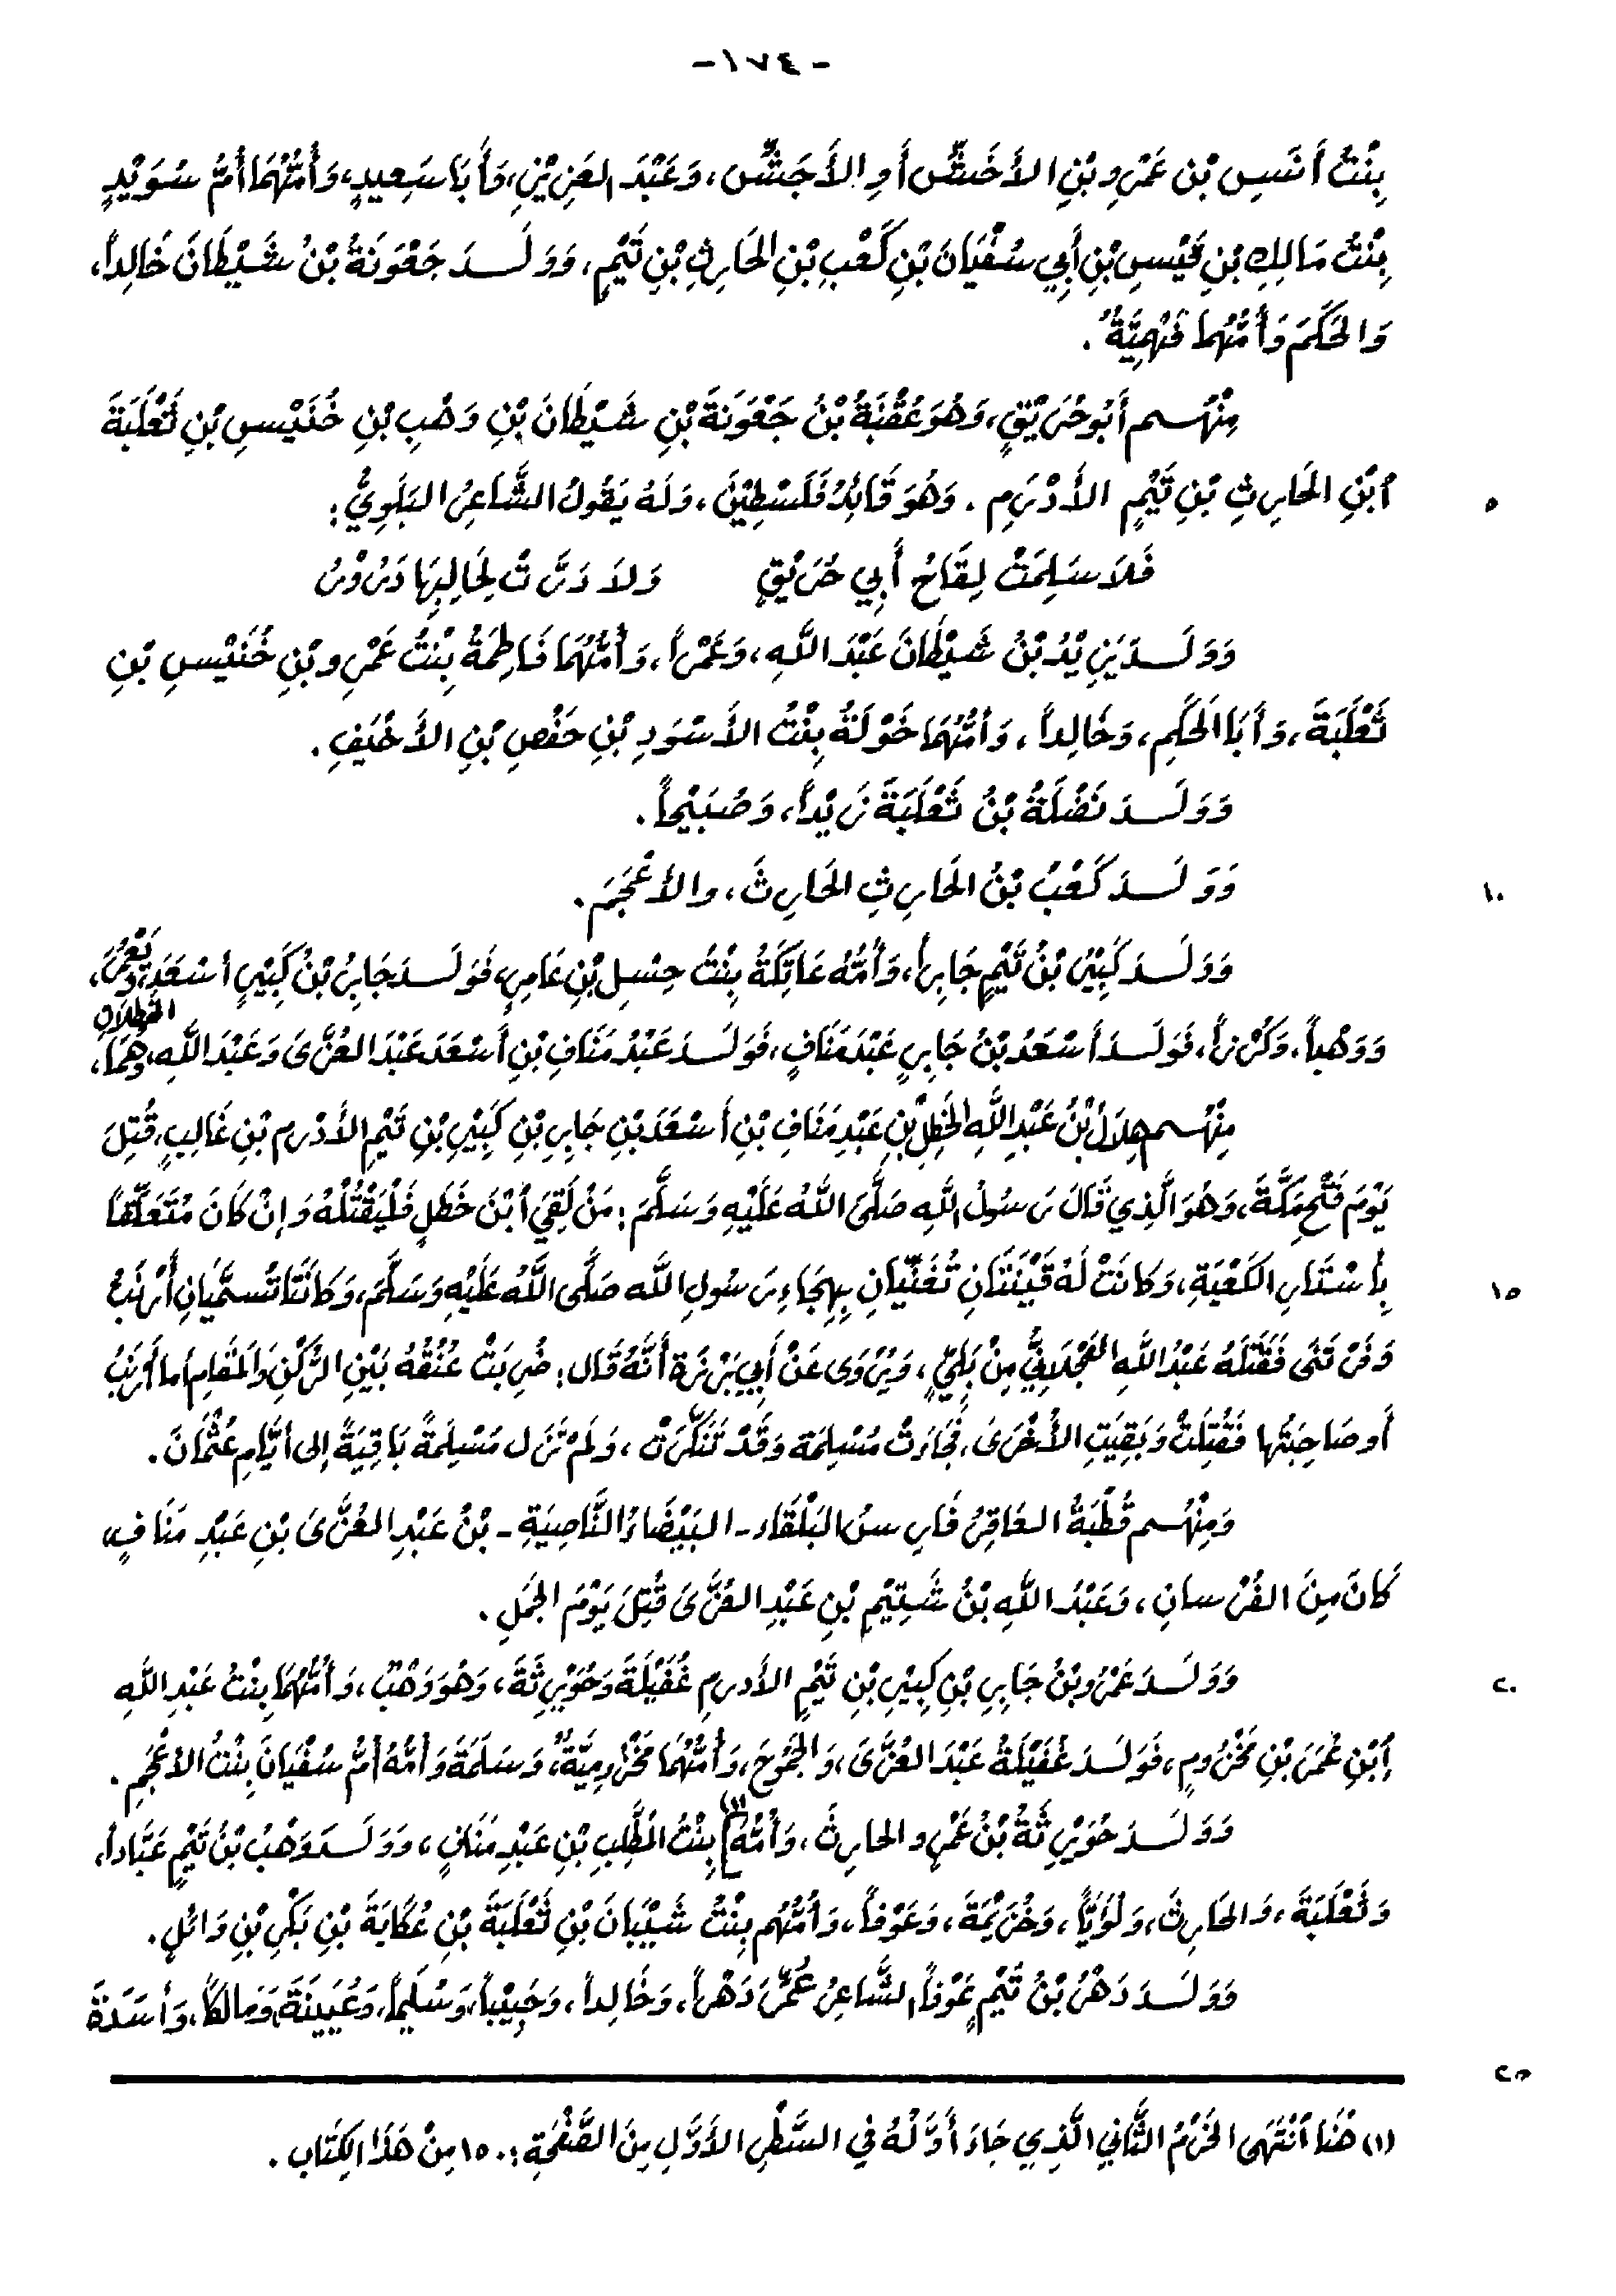 -١٧٤-
بِنْتُ أَنَسِ بْنِ عَمْرِو بْنِ الأَخَشِّ أَوِ الأَجَشِّ، وَعَبْدَ العَزِيْزِ، وَأَبَا سَعِيدٍ، وَأُمُّهُمَا أُمُّ سُوَيْدٍ
بِنْتُ مَالِكِ بْنِ قَيْسِ بْنِ أَبِي سُفْيَانَ بْنِ كَعْبِ بْنِ الحَارِثِ بْنِ تَيْمٍ، وَوَلَدَ جَعْوَنَةُ بْنُ شَيْطَانَ خَالِداً،
وَالحَكَمَ وَأُمُّهُمَا فَهْمِيَّةٌ.
مِنْهُم أَبُو حُرَيْقٍ، وَهُوَ عُقْبَةُ بْنُ جَعْوَنَةَ بْنِ شَيْطَانَ بْنِ وَهْبِ بْنِ خُنَيْسِ بْنِ ثَعْلَبَةَ
ٱبْنِ الحَارِثِ بْنِ تَيْمٍ الأَدْرَمِ. وَهُوَ قَائِدُ فَلَسْطِيْنَ، وَلَهُ يَقُولُ الشَّاعِرُ البَلَوِيُّ:
٥
فَلاَ سَلِمَتْ لِقَاحُ أَبِي حُرَيْقٍ وَلاَ دَرَّتْ لِحَالِبِهَا دَرُوْرُ
وَوَلَدَ يَزِيْدُ بْنُ شَيْطَانَ عَبْدَ اللهِ، وَعَمْراً، وَأُمُّهُمَا فَاطِمَةُ بِنْتُ عَمْرِو بْنِ خُنَيْسِ بْنِ
ثَعْلَبَةَ، وَأَبَا الحَكَمِ، وَخَالِداً، وَأُمُّهُمَا خَوْلَةُ بِنْتُ الأَسْوَدِ بْنِ حَفْصِ بْنِ الأَخْيَفِ.
وَوَلَدَ نَضْلَةُ بْنُ ثَعْلَبَةَ زَيْداً، وَصُبَيْحاً.
وَوَلَدَ كَعْبُ بْنُ الحَارِثِ الحَارِثَ، والأَعْجَمَ.
١٠
وَوَلَدَ كَبِيْرُ بْنُ تَيْمٍ جَابِراً، وَأُمُّهُ عَاتِكَةُ بِنْتُ حِسْلِ بْنِ عَامِرٍ، فَوَلَدَ جَابِرُ بْنُ كَبِيْرٍ أسْعَدَ، وَيَعْمُرَ،
وَوَهْباً، وَكُرْزاً، فَوَلَدَ أَسْعَدُ بْنُ جَابِرٍ عَبْدَ مَنَافٍ، فَوَلَدَ عَبْدُ مَنَافِ بْنِ أَسْعَدَ عَبْدَ العُزَّى وَعَبْدَ اللهِ، وَهُمَا الخَطِلاَنِ،
مِنْهُم هِلَالُ بْنُ عَبْدِ اللهِ الخَطِلِ بْنِ عَبْدِ مَنَافِ بْنِ أَسْعَدَ بْنِ جَابِرِ بْنِ كَبِيْرِ بْنِ تَيْمِ الأَدْرِمِ بْنِ غَالِبٍ، قُتِلَ
يَوْمَ فَتْحِ مَكَّةَ، وَهُوَ الَّذِي قَالَ رَسُولُ اللهِ صَلَّى اللهُ عَلَيْهِ وَسَلَّمَ: مَنْ لَقِيَ ٱبْنَ خَطَلٍ فَلْيَقْتُلْهُ وَإنْ كَانَ مُتَعَلِّقاً
بِأَسْتَارِ الكَعْبَةِ، وَكَانَتْ لَهُ قَيْنَتَانِ تُغَنِّيَانِ بِهِجَاءِ رَسُولِ الله صَلَّى اللهُ عَلَيْهِ وَسَلَّمَ، وَكَانَتَا تُسَمَّيَانِ أَرْنَبُ
١٥
وَفَرْتَنَى فَقَتَلَهُ عَبْدُ اللهِ العَجْلَانِيُّ مِنْ بَلِيٍّ، وَيُرْوَى عَنْ أَبِي بَرْزَةَ أَنَّهُ قَالَ: ضُرِبَتْ عُنُقُهُ بَيْنِ الرُّكْنِ وَالمَقَامِ، أما أَرْنَبُ
أَو صَاحِبَتُها فَقُتِلَتْ وَبَقِيَتِ الأُخْرَى، فَجَاءَتْ مُسْلِمَة وَقَدْ تَنَكَّرَتْ، وَلَمْ تَزَل مَسْلِمَةً بَاقِيَةً إلى أَيَّامِ عُثْمَانَ.
وَمِنْهُم قُطْبَةُ العَاقِرُ فَارِسُ البَلْقَاءِ - البَيْضَاءُ النَّاصِيَةِ - بْنُ عَبْدِ العُزَّى بْنِ عَبْدِ مَنَافٍ،
كَانَ مِنَ الفُرْسانِ، وَعَبْدُ اللهِ بْنُ شَتِيْمِ بْنِ عَبْدِ العُزَّى قُتِلَ يَوْمَ الجَمَلِ.
وَوَلَدَ عَمْرُو بْنُ جَابِرِ بْنِ كَبِيْرِ بْنِ تَيْمٍ الأَدرمِ غُفَيْلَةَ وَحُوَيْرِثَةَ، وَهُوَ وَهْبٌ، وَأُمُّهُمَا بِنْتُ عَبْدِ اللهِ
٢٠
ٱبْنِ عُمَرَ بْنِ مَخْزُومٍ، فَوَلَدَ غُفَيْلَةُ عَبْدَ العُزَّى، وَالجَمُوحَ، وَأُمُّهُمَا مَخْزُومِيَّةٌ، وَسَلَمَةَ وَأُمُّهُ أمُّ سُفْيَانَ بِنْتُ الأَعْجَمِ.
وَوَلَدَ حُوَيْرِثَةُ بْنُ عَمْرٍو الحارِثَ، وَأُمُّهُ](١) بِنْتُ المُطَّلِبِ بْنِ عَبْدِ مَنَافٍ، وَوَلَدَ وَهْبُ بْنُ تَيْمٍ عَبَّاداً،
وَثَعْلَبَةَ، وَالحَارِثَ، وَلُؤَيَّاً، وَخُزَيْمَةَ، وَعَوْفاً، وَأُمُّهُم بِنْتُ شَيْبَانَ بْنِ ثَعْلَبَةَ بْنِ عُكَابَةَ بْنِ بَكْرِ بْنِ وَائلٍ.
وَوَلَدَ دَهْرُ بْنُ تَيْمٍ عَوْفاً، الشَّاعِرُ عُمِّرَ دَهْراً، وَخَالِداً، وَحَبِيْباً، وَسُلَيماً، وَعُيَيْنَةَ، وَمَالكاً، وَأسَدَةَ
٢٥
(١) هُنَا ٱنْتَهَى الخَرْمُ الثَّاني الَّذِي جَاءَ أَوَّلُهُ فِي السَّطْرِ الأَوَّلِ مِنَ الصَّفْحَةِ: ١٥٠ مِنْ هَذَا الكِتَابِ.